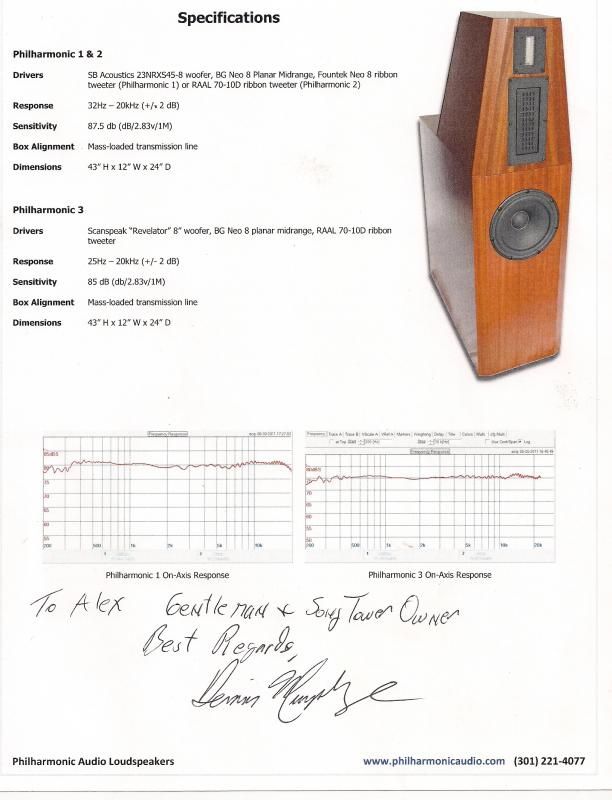 Specifications
Philharmonic 1 & 2
Drivers SB Acoustics 23NRXS45-8 woofer, BG Neo 8 Planar Midrange, Fountek Neo 8 ribbon
tweeter (Philharmonic 1) or RAAL 70-10D ribbon tweeter (Philharmonic 2)
Response 32Hz – 20kHz (+/- 2 dB)
Sensitivity 87.5 db (dB/2.83v/1M)
Box Alignment Mass-loaded transmission line
Dimensions 43” H x 12” W x 24” D
Philharmonic 3
Drivers Scanspeak “Revelator” 8” woofer, BG Neo 8 planar midrange, RAAL 70-10D ribbon
tweeter
Response 25Hz – 20kHz (+/- 2 dB)
Sensitivity 85 dB (db/2.83v/1M)
Box Alignment Mass-loaded transmission line
Dimensions 43” H x 12” W x 24” D
Frequency Response
75
70
65
60
55
200 500 1k 2k 5k 10k
Frequency Response
70
60
50
200 500 1k 2k 5k 10k 20k
Philharmonic 1 On-Axis Response
Philharmonic 3 On-Axis Response
To Alex Gentleman & Song Tower Owner
Best Regards,
Dennis Murphy
Philharmonic Audio Loudspeakers www.philharmonicaudio.com (301) 221-4077